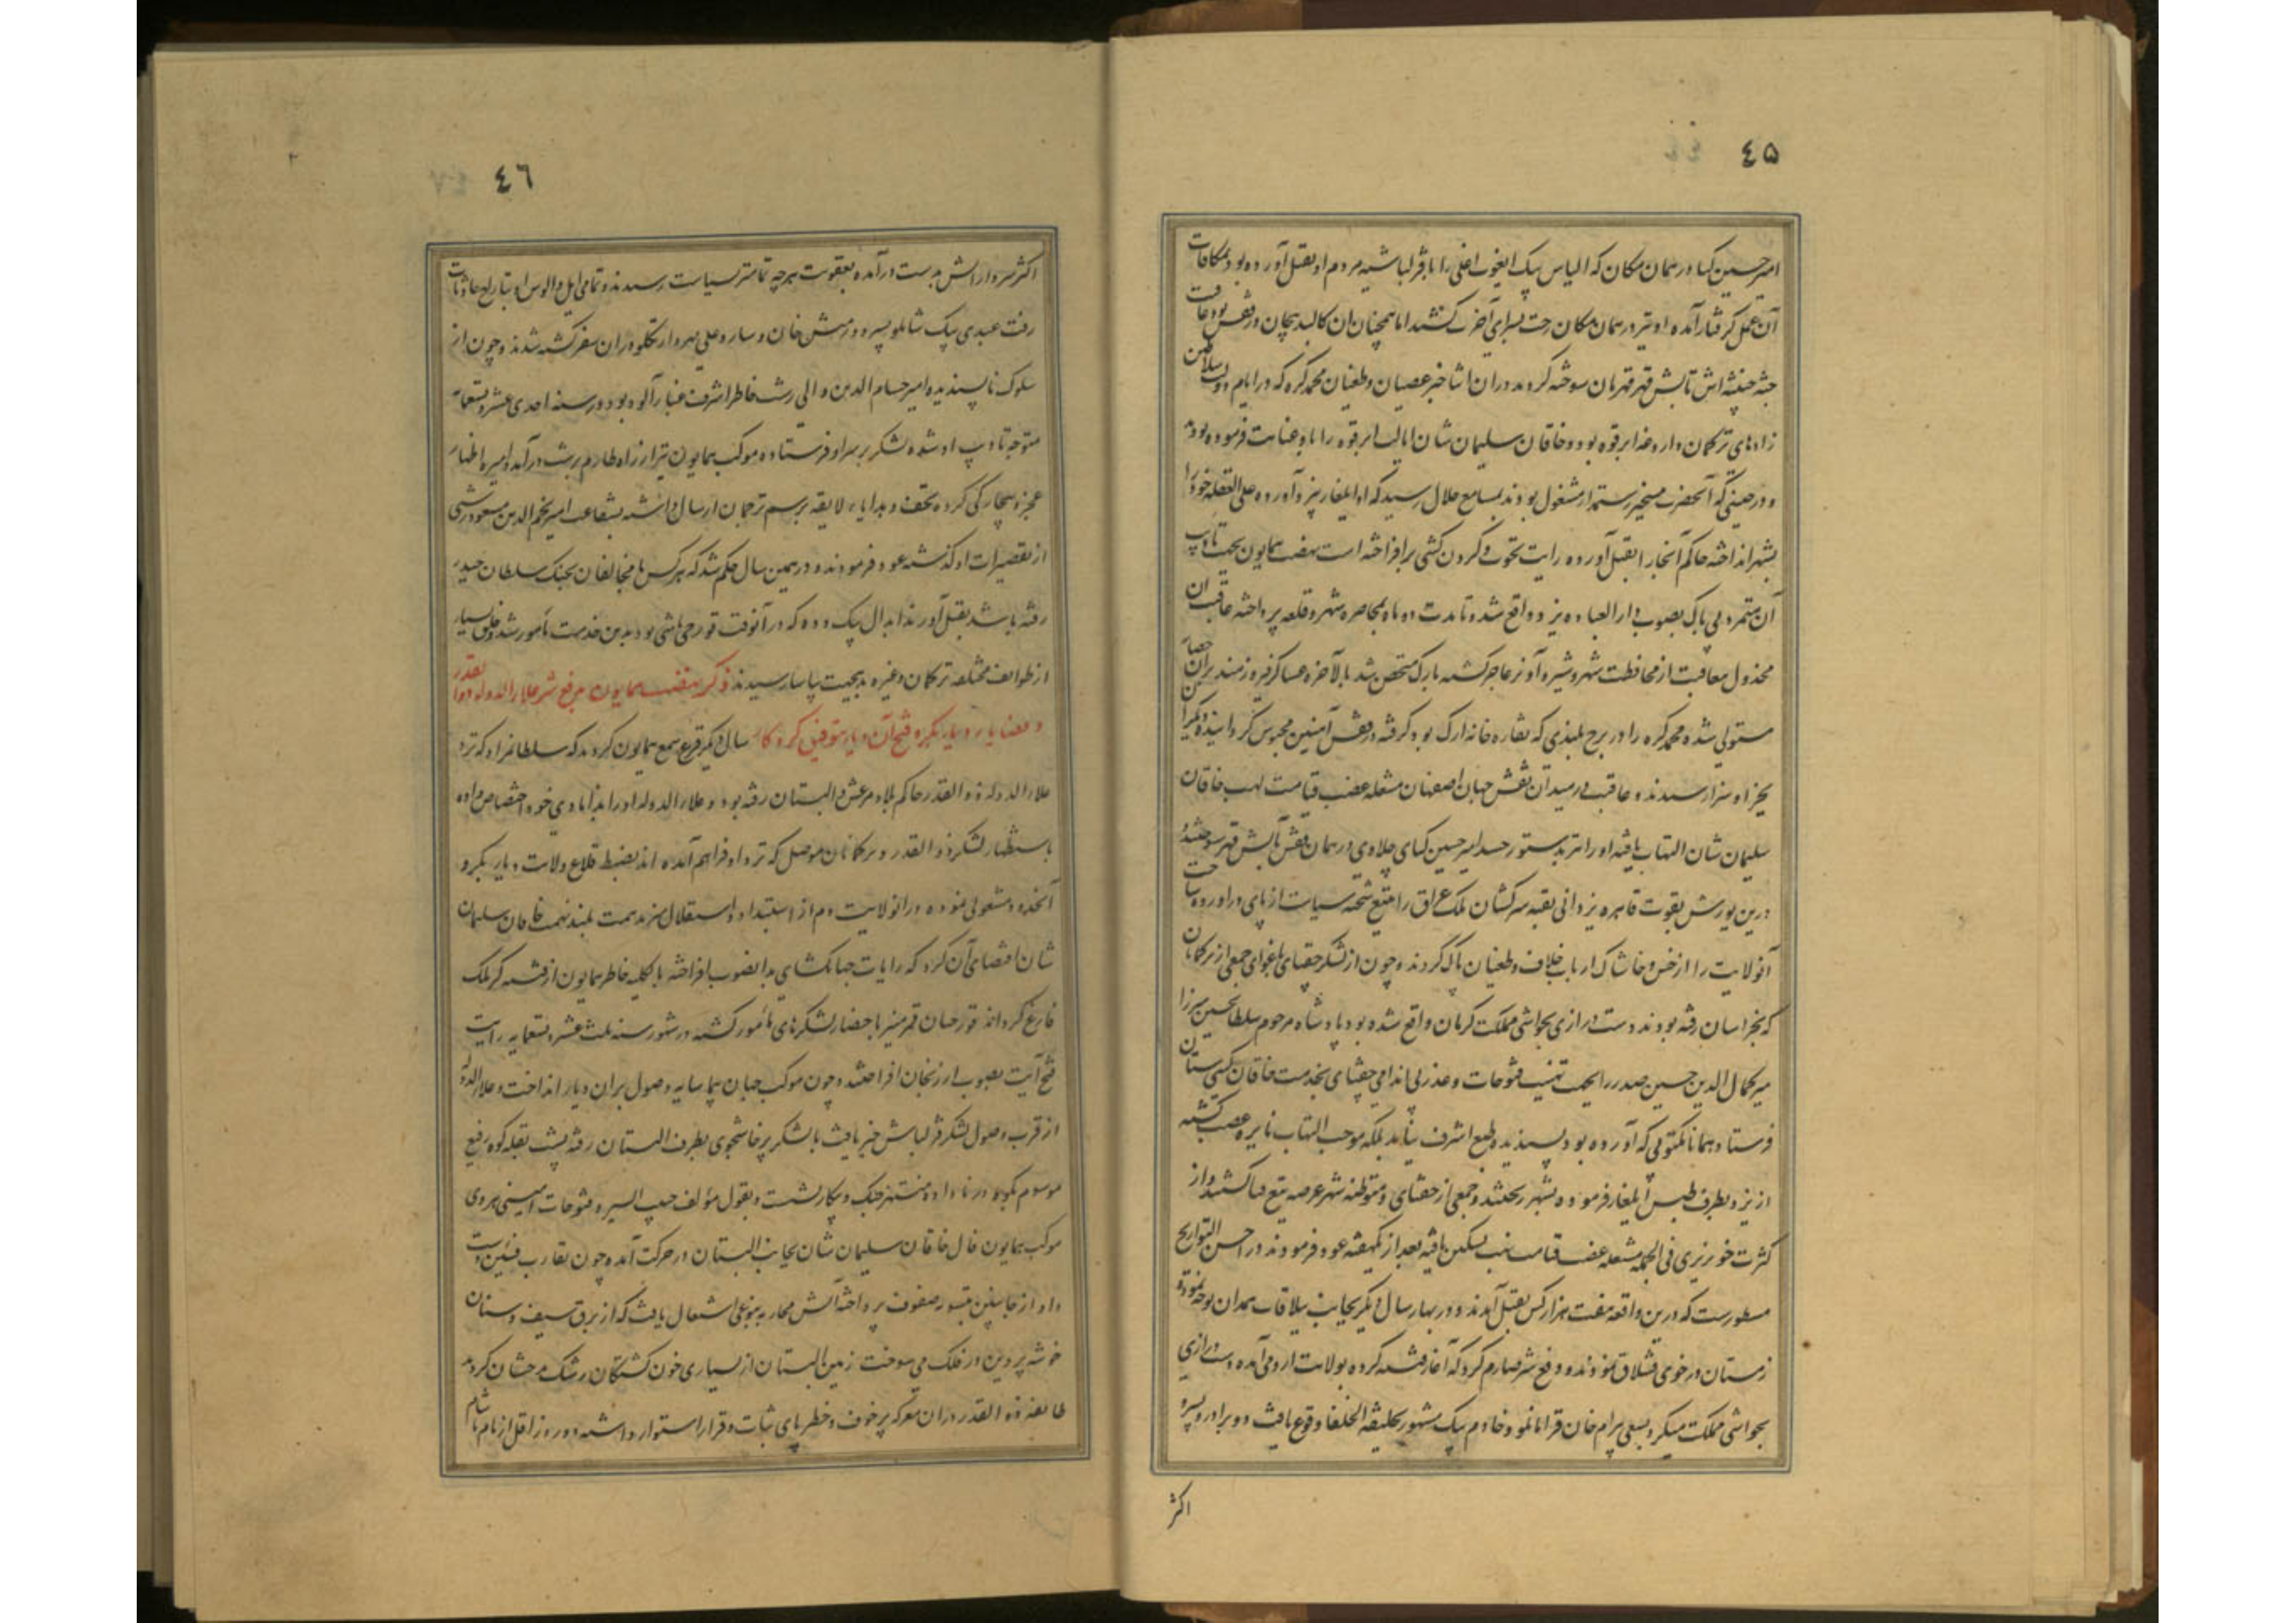 ٤٥
امیر حسین کیا در همان مکان که الیاس بیک ایغوت اغلی را با قزلباشیه مردم او بقتل آورده بود بمکافات
آن عمل گرفتار آمده او نیز در همان مکان رخت بسرای آخرت کشید اما همچنان آن کالبد بیجان در قفس بود عاقبت
جثه خبیثه اش بآتش قهر قهرمان سوخته گردید در آن اثنا خبر عصیان و طغیان محمد کره که در ایام دولت سلاطین
زادهای ترکمان داروغه ابرقوه بود و خاقان سلیمان شان ایالت ابرقوه را باو عنایت فرموده بودند
و در حینی که آنحضرت بتسخیر رستمدار مشغول بودند بمسامع جلال رسید که او ایلغار بیزد آورده علی الغفله خود را
بشهر انداخته حاکم آنجا را بقتل آورده رایت نخوت و گردن کشی برافراخته است نهضت همایون بجهت تادیب
آن متمرد بی باک بصوب دار العباده یزد واقع شد و تا مدت دو ماه بمحاصره شهر و قلعه پرداخته عاقبت آن
مخذول بعاقبت از محافظت شهر و شیره آو نز عاجز گشته بارک متحصن شد بالآخره عساکر فیروزمند بر آن حصار
مستولی شده محمد کره را در برج بلندی که نقاره خانه ارک بود گرفته در قفس آهنین محبوس گردانیدند و دیگران
بجزا و سزا رسیدند و عاقبت در میدان نقش جهان اصفهان مشعله غضب قیامت لهب خاقان
سلیمان شان التهاب یافته او را نیز بدستور جسد امیر حسین کیای چلاوی در همان قفس بآتش قهر سوختند و
درین یورش بقوت قاهره یزدانی بقیه سرکشان ملک عراق را بتیغ شحنه سیاست از پای درآورده ساحت
آنولایت را از خس و خاشاک ارباب خلاف و طغیان پاک کردند و چون از لشکر جغتای باغوای جمعی از ترکمانان
که بخراسان رفته بودند دست درازی بحواشی مملکت کرمان واقع شده بود پادشاه مرحوم سلطانحسین میرزا
میر کمال الدین حسین صدر را بجهت تهنیت فتوحات و عذر بی اندامی جغتای بخدمت خاقان گیتی ستان
فرستاد همانا مکتوبی که آورده بود پسندیده طبع اشرف نیامد بلکه موجب التهاب نایره غضب گشته
از یزد بطرف طبس ایلغار فرموده بشهر ریختند و جمعی از جغتای و متوطنه شهر عرصه تیغ هلاک شدند و از
کثرت خونریزی فی الجمله مشعله غضب قیامت لهب تسکین یافته بعد از یکهفته عود فرمودند در احسن التواریخ
مسطورست که درین واقعه هفت هزار کس بقتل آمدند و در بهار سال دیگر بجانب ییلاقات همدان توجه نموده
زمستان در خوی قشلاق نمودند و دفع شر صارم کرد که آغاز فتنه کرده بولایت ارومی آمده دست درازی
بحواشی مملکت میکرد بسعی بیرام خان قرامانلو و خادم بیک مشهور بخلیفة الخلفا وقوع یافت و دو برادر و پسر و
اکثر
٤٦
اکثر سردارانش بدست درآمده بعقوبت هرچه تمامتر بسیاست رسیدند و تمامی ایل و الوس او بتاراج حادثات
رفت عبدی بیک شاملو پسر دورمش خان و ساروعلی مهردار تکلو در آن سفر کشته شدند و چون از
سلوک ناپسندیده امیر حسام الدین والی رشت خاطر اشرف غبار آلوده بود در سنه احدی عشر و تسعمائه
متوجه تادیب او شده لشکر بر سر او فرستاده موکب همایون نیز از راه طارم برشت درآمد و امیره اظهار
عجز و بیچارگی کرده تحف و هدایاء لایقه برسم ترجمان ارسال داشته بشفاعت امیر نجم الدین مسعود رشتی
از تقصیرات او گذشته عود فرمودند و در همین سال حکم شد که هر کس با مخالفان بجنک سلطان حیدر
رفته باشد بقتل آورند ابدال بیک دده که در آنوقت قورچی باشی بود بدین خدمت مامور شد و خلق بسیار
از طوایف مختلفه ترکمان و غیره بدین جهت بیاسا رسیدند ذکر نهضت همایون بدفع شر علاء الدوله ذوالقدر
و قضایا دیار بکر و فتح آن دیار بتوفیق کردکار سال دیگر قرع سمع همایون کردید که سلطانمراد که نزد
علاء الدوله ذوالقدر حاکم بلاد مرعش و البستان رفته بود و علاء الدوله او را بدامادی خود اختصاص داده
باستظهار لشکر ذوالقدر و ترکمانان موصل که نزد او فراهم آمده اند بضبط قلاع ولایت دیار بکر و
آنحدود مشغولی نموده در آنولایت دم از استبداد و استقلال میزند همت بلند نهمت خاقان سلیمان
شان اقتضای آن کرد که رایات جهانگشای بدانصوب افراخته بالکلیه خاطر همایون از فتنه گر ملک
فارغ گرداند قورچیان قمر مسیر باحضار لشکرهای مامور گشته در شهور سنه ثلث عشر و تسعمایه رایت
فتح آیت بصوب ارزنجان افراختند و چون موکب جهان پیما سایه وصول بران دیار انداخت و علاء الدوله
از قرب وصول لشکر قزلباش خبر یافت با لشکر پرخاشجوی بطرف البستان رفته پشت بقله کوه رفیع
موسوم بکوه درنا داده منتهز جنک و پیکار نشست و بقول مؤلف حبیب السیر و فتوحات امینی هروی
موکب همایون فال خاقان سلیمان شان بجانب البستان در حرکت آمده چون تقارب فئتین دست
داد از جانبین بتسویه صفوف پرداخته آتش محاربه بنوعی اشتعال یافت که از برق سیف و سنان
خوشه پروین در فلک می سوخت زمین البستان از بسیاری خون کشتگان رشک بدخشان گردید
طایفه ذوالقدر در آن معرکه پر خوف و خطر پای ثبات و قرار استوار داشته دو روز اقل از بام تا شام